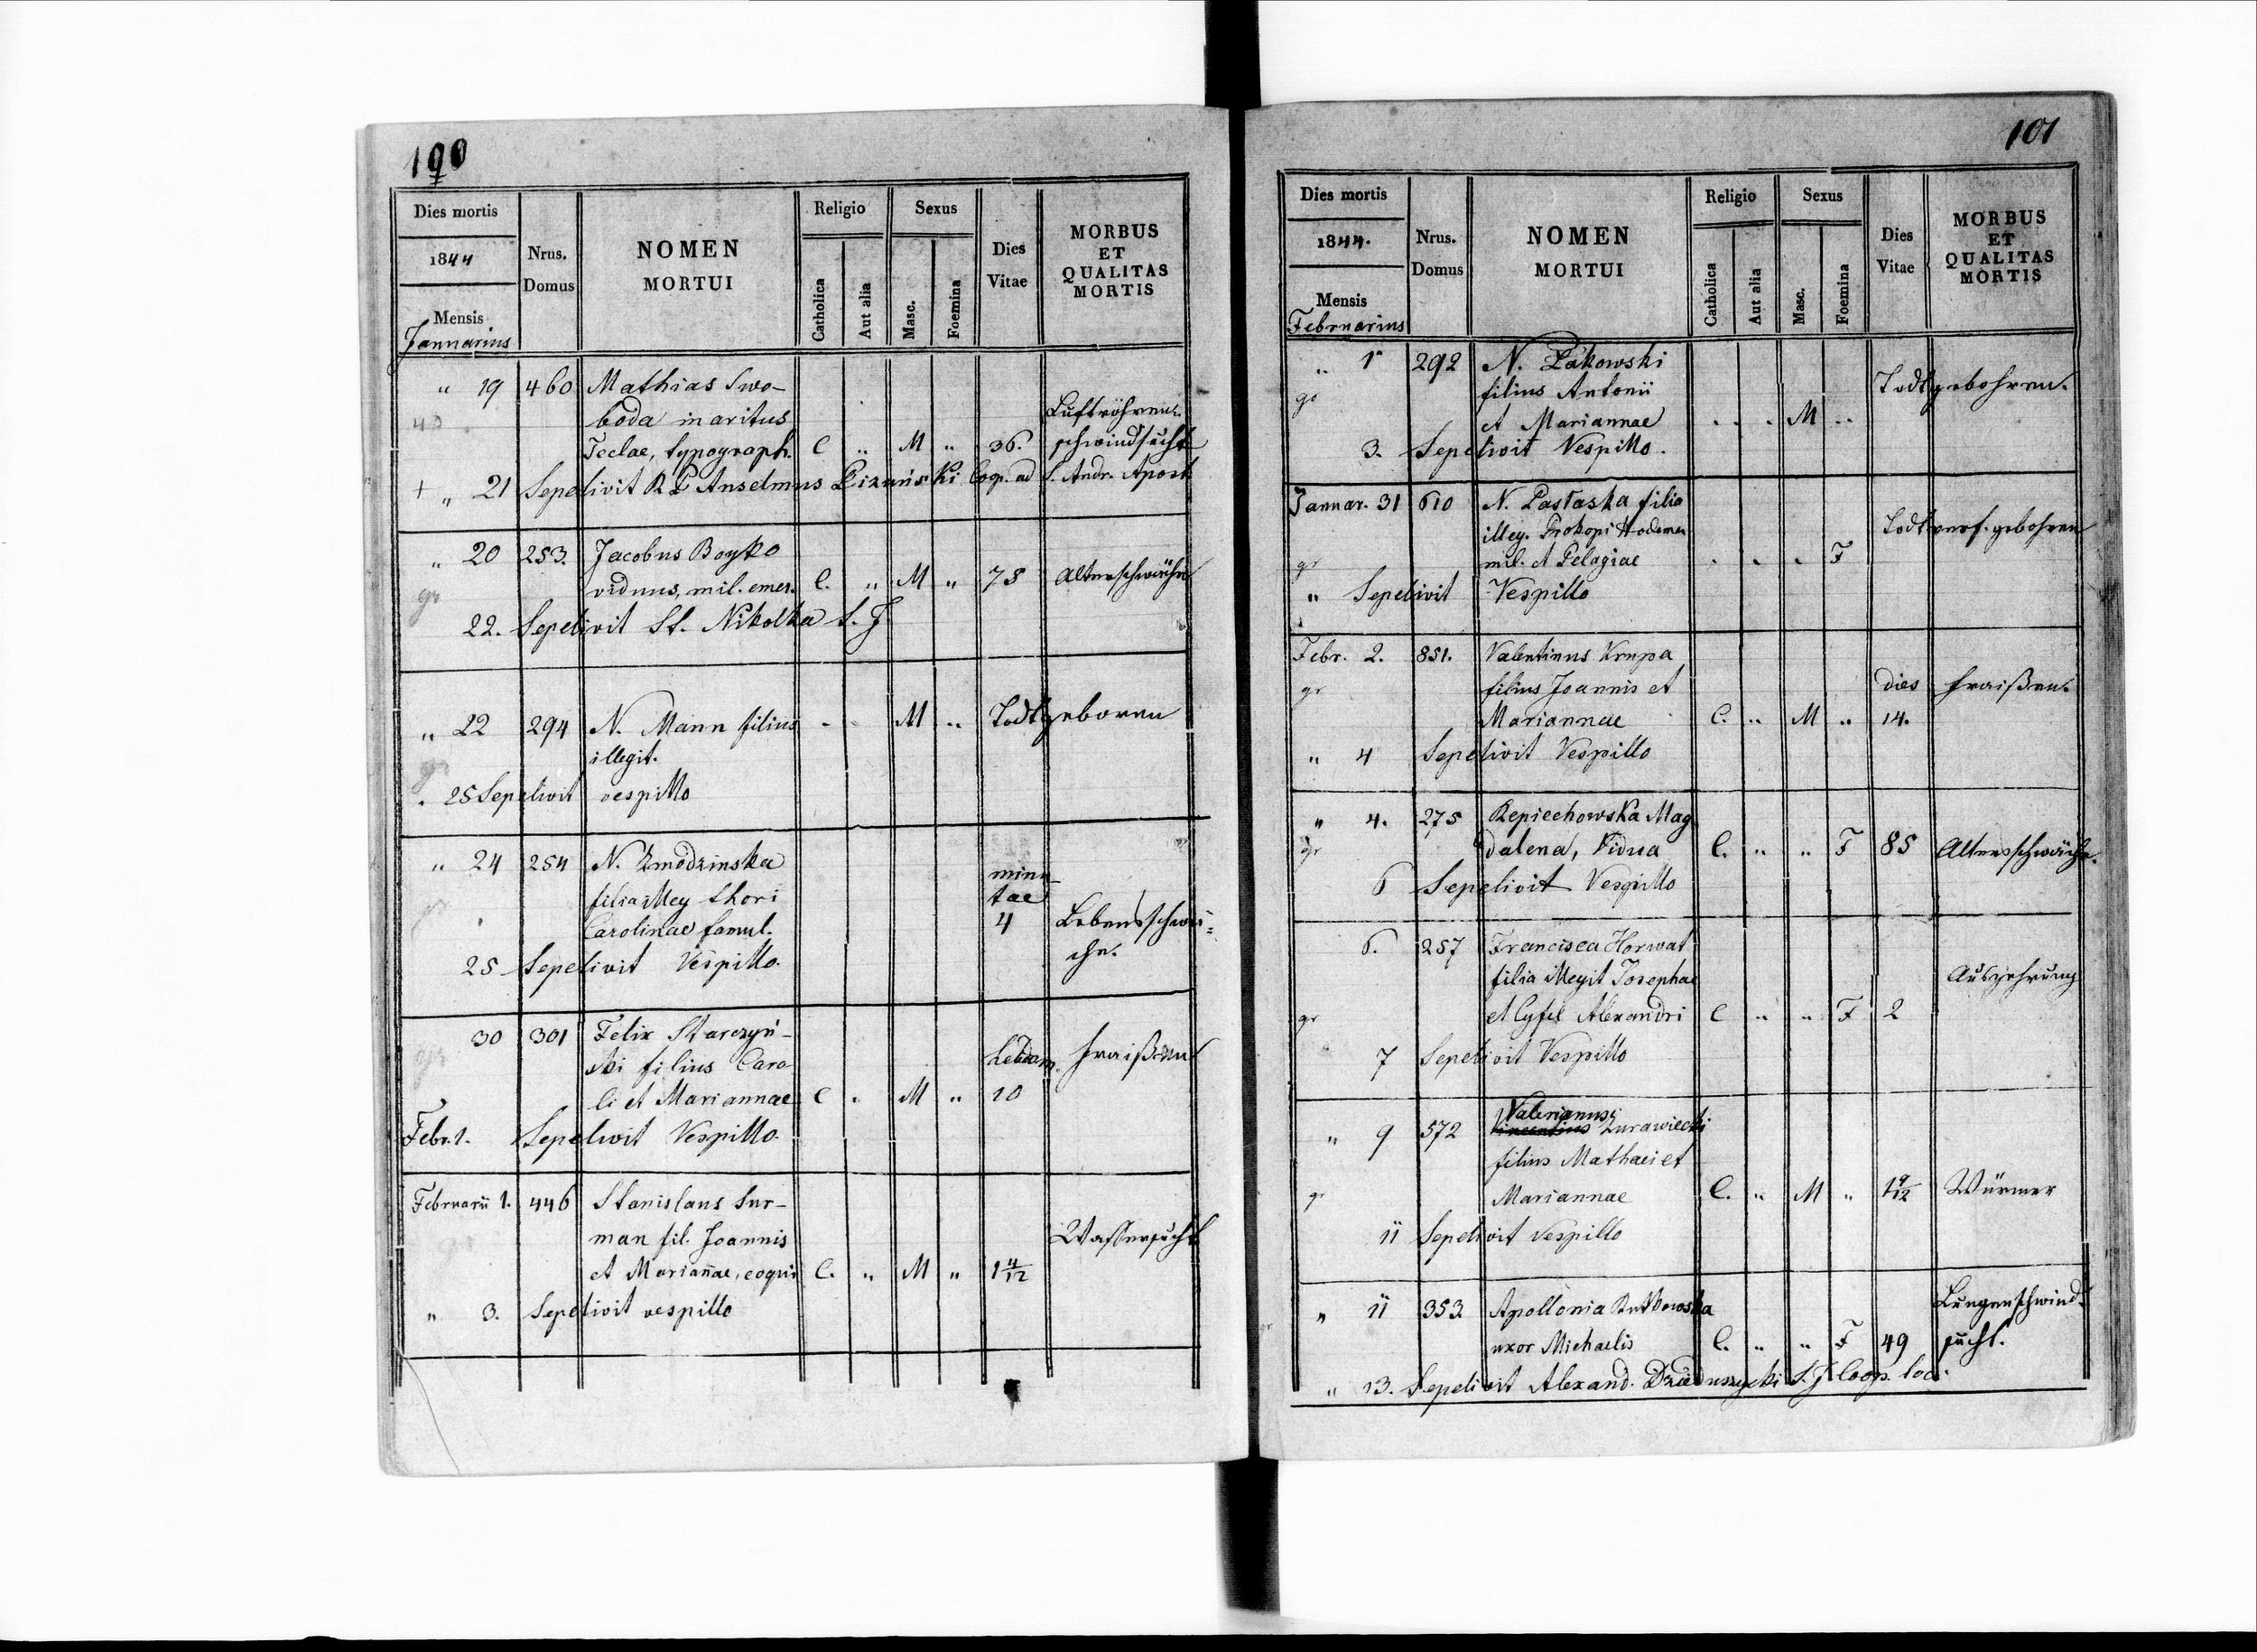 100
Dies mortis
1844
Mensis
Januarius
Nrus.
Domus
NOMEN
MORTUI
Religio
Catholica
Aut alia
Sexus
Masc.
Foemina
Dies
Vitae
MORBUS
ET
QUALITAS
MORTIS
" 19 460 Mathias Swo-
boda maritus Luftröhren-
Teclae, typograph. C " M " 36. schwindsucht
+ " 21 Sepelivit R P Anselmus Coop. ad S. Andr. Apost.
" 20 253. Jacobus Boyko
gr viduus, mil. emer. C. " M " 78 Altersschwäche
22. Sepelivit St. Nikolka S. J
" 22 294 N. Mann filius - - M " Todtgeboren
gr illegit.
25 Sepelivit vespillo
" 24 254 N. Zmodzinska minu
filia illeg thori tae
Carolinae famul. 4 Lebensschwä-
25 Sepelivit Vespillo. che.
30 301 Felix Starczyń-
gr ski filius Caro hebdom. Fraißen
li et Mariannae C . M " 10
Febr. 1. Sepelivit Vespillo.
Februarii 1. 446 Stanislaus Sur-
man fil. Joannis Wassersucht
et Mariañae, coqui C. " M " 1 11/12
" 3. Sepelivit vespillo
101
Dies mortis
1844.
Mensis
Februarius
Nrus.
Domus
NOMEN
MORTUI
Religio
Catholica
Aut alia
Sexus
Masc.
Foemina
Dies
Vitae
MORBUS
ET
QUALITAS
MORTIS
" 1 292 N. Pakowski
gr filius Antonii Todtgebohren.
et Mariannae . . . M "
3. Sepelivit Vespillo.
Januar. 31 610 N. Pastaska filia
illeg. Prokopi Todt gebohren
gr mil. et Pelagiae . . . F
" Sepelivit Vespillo
Febr. 2. 851. Valentinus Krupa
gr filius Joannis et dies Fraißen.
Mariannae C. " M " 14.
" 4 Sepelivit Vespillo
" 4. 275 Repiechowska Mag
gr dalena, Vidua C. " " F 85 Altersschwäche.
6 Sepelivit Vespillo
6. 257 Francisca Horwat
filia illegit Josephae Auszehrung
gr et Alexandri C " " F 2
7 Sepelivit Vespillo
Valerianus
" 9 572 Vincentius Zurawiecki
filius Mathaei et
gr Mariannae C. " M " 1 9/12 Würmer
11 Sepelivit Vespillo
" 11 353 Apollonia Rutkowska Lungenschwind-
gr uxor Michaelis C. " " F 49 sucht.
" 13. Sepelivit Alexand. Dzieduszycki S. J Coop. loci.